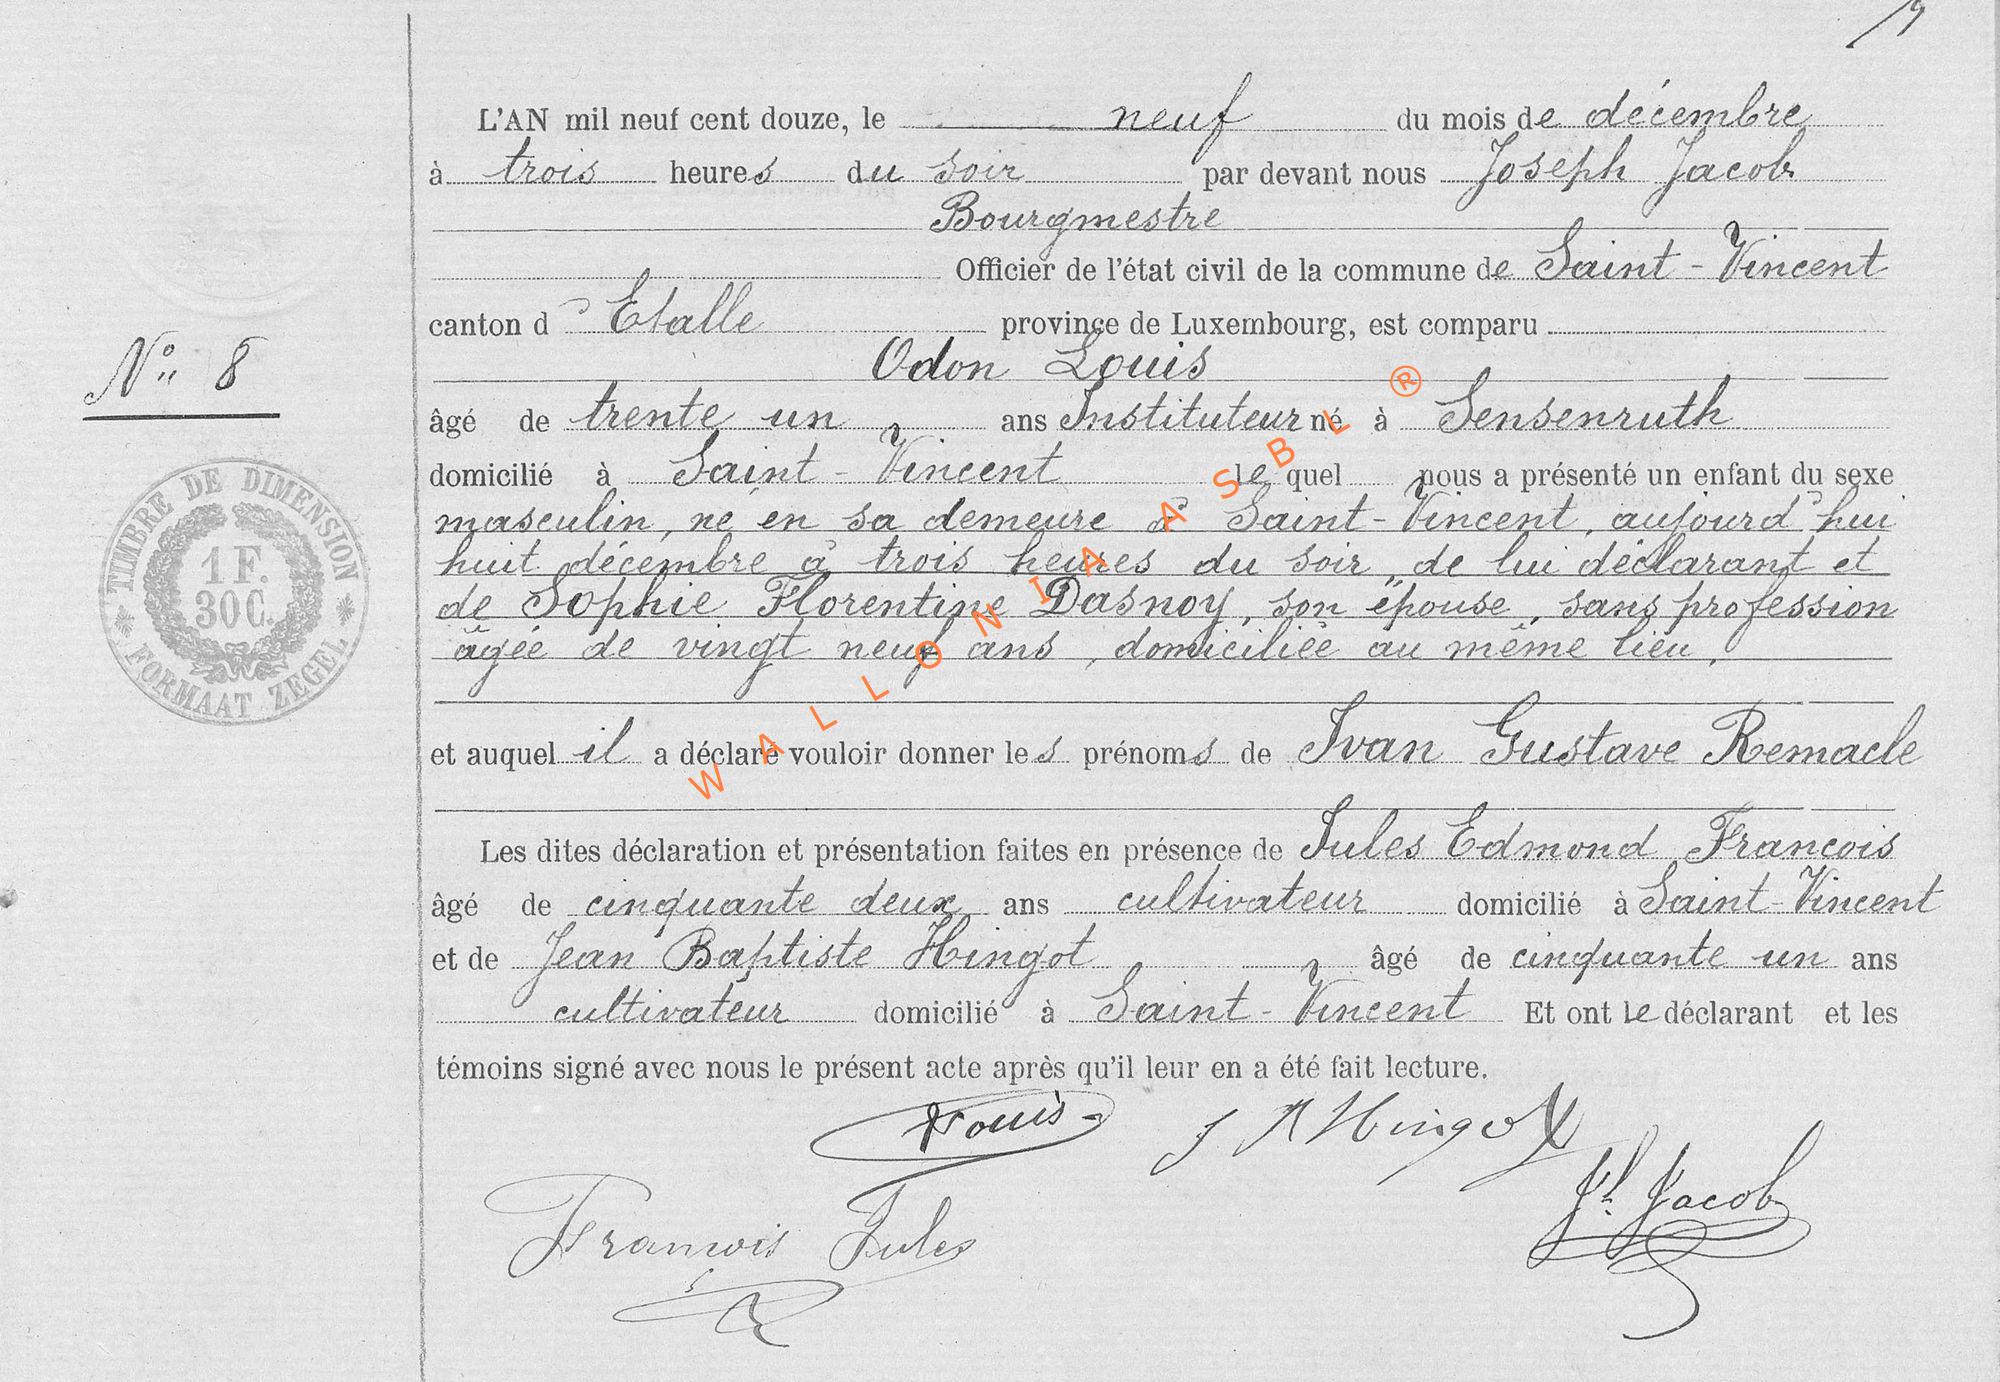 19
L'AN mil neuf cent douze, le neuf du mois de décembre
à trois heures du soir par devant nous Joseph Jacob
Bourgmestre
Officier de l'état civil de la commune de Saint-Vincent
canton d' Etalle province de Luxembourg, est comparu
Odon Louis
âgé de trente un ans Instituteur né à Sensenruth
domicilié à Saint-Vincent lequel nous a présenté un enfant du sexe
masculin, né en sa demeure à Saint-Vincent, aujourd'hui
huit décembre à trois heures du soir, de lui déclarant et
de Sophie Florentine Dasnoy, son épouse, sans profession
âgée de vingt neuf ans, domiciliée au même lieu.
et auquel il a déclaré vouloir donner les prénoms de Ivan Gustave Remacle
Les dites déclaration et présentation faites en présence de Jules Edmond Francois
âgé de cinquante deux ans cultivateur domicilié à Saint-Vincent
et de Jean Baptiste Hingot âgé de cinquante un ans
cultivateur domicilié à Saint-Vincent Et ont le déclarant et les
témoins signé avec nous le présent acte après qu'il leur en a été fait lecture.
Louis J B Hingot
François Jules Jh Jacob
No 8
TIMBRE DE DIMENSION
1 F.
30 C.
FORMAAT ZEGEL
WALLONIA ASBL ®